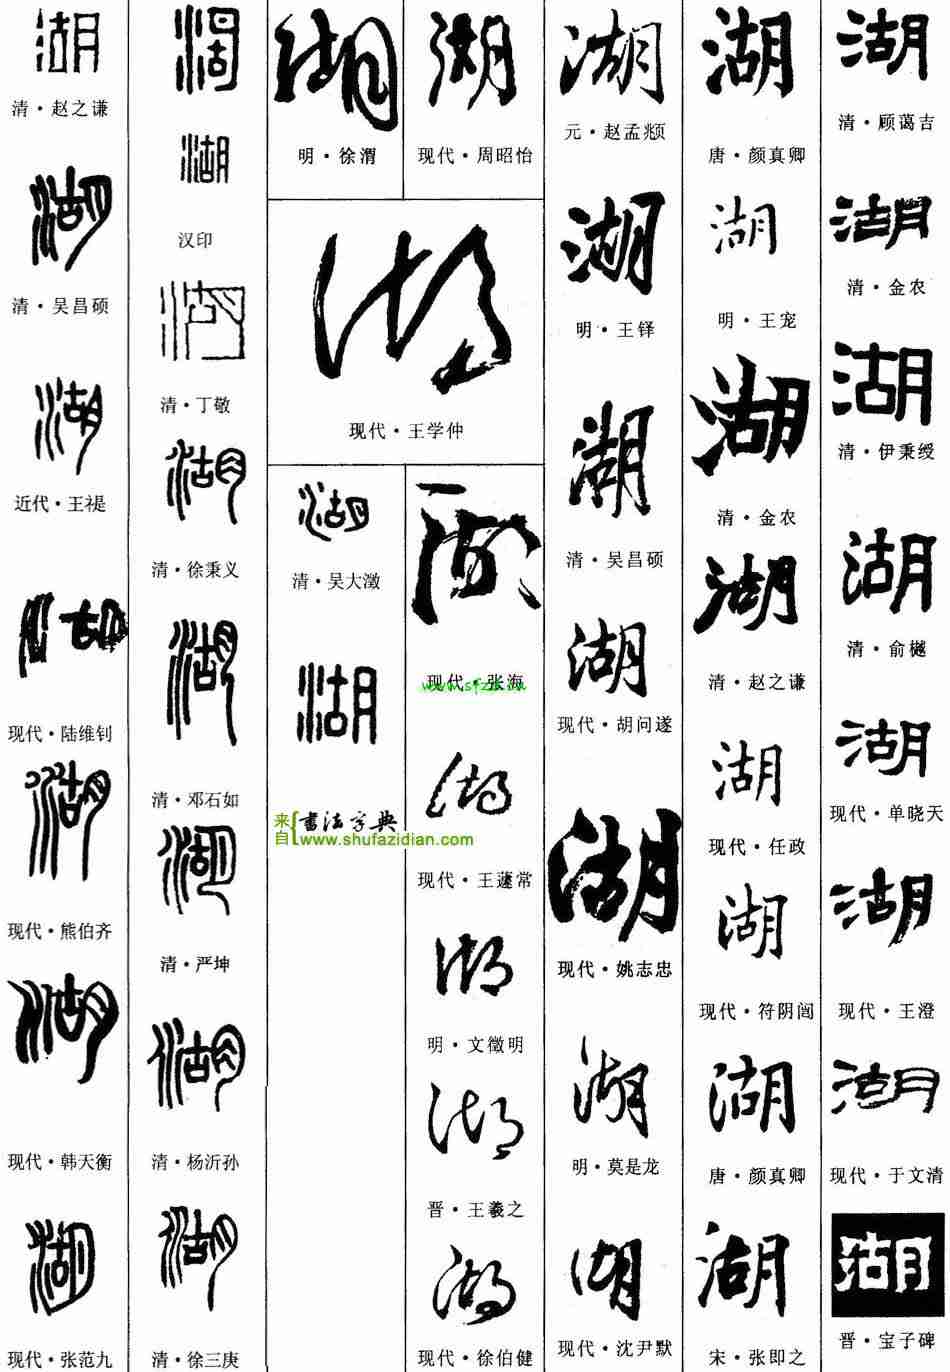 湖
清·赵之谦
湖
清·吴昌硕
湖
近代·王禔
湖
现代·陆维钊
湖
现代·熊伯齐
湖
现代·韩天衡
湖
现代·张范九
湖
湖
汉印
湖
清·丁敬
湖
清·徐秉义
湖
清·邓石如
湖
清·严坤
湖
清·杨沂孙
湖
清·徐三庚
湖
明·徐渭
湖
现代·周昭怡
湖
现代·王学仲
湖
清·吴大澂
湖
来自 书法字典
www.shufazidian.com
湖
现代·张海
湖
现代·王蘧常
湖
明·文徵明
湖
晋·王羲之
湖
现代·徐伯健
湖
元·赵孟頫
湖
明·王铎
湖
清·吴昌硕
湖
现代·胡问遂
湖
现代·姚志忠
湖
明·莫是龙
湖
现代·沈尹默
湖
唐·颜真卿
湖
明·王宠
湖
清·金农
湖
清·赵之谦
湖
现代·任政
湖
现代·符阴阊
湖
唐·颜真卿
湖
宋·张即之
湖
清·顾蔼吉
湖
清·金农
湖
清·伊秉绶
湖
清·俞樾
湖
现代·单晓天
湖
现代·王澄
湖
现代·于文清
湖
晋·宝子碑